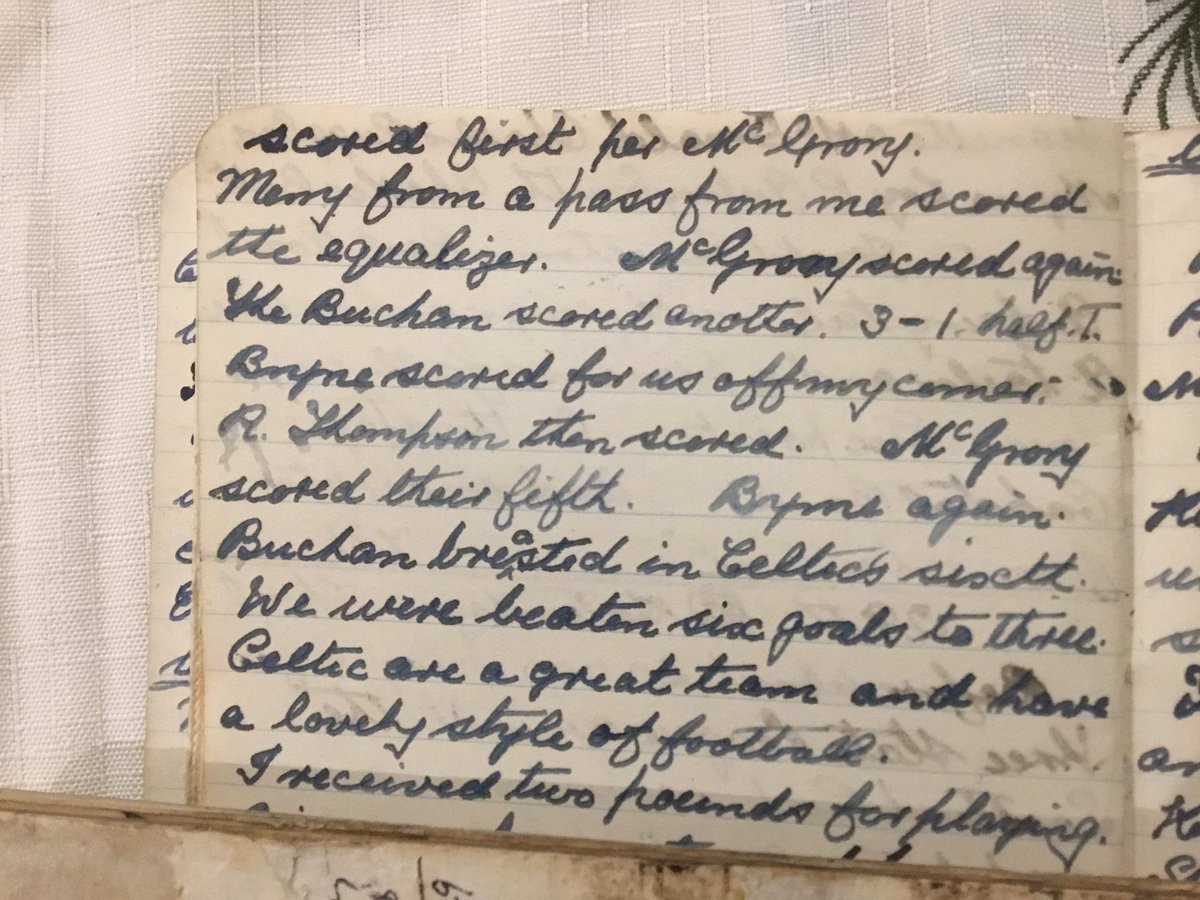 scored first per McGrory.
Merry from a pass from me scored
the equalizer. McGrory scored again.
The Buchan scored anotter. 3-1. half.T.
Bryne scored for us off my corner.
R. Thompson then scored. McGrory
scored their fifth. Bryne again.
Buchan breasted in Celtic's sixtt.
We were beaten six goals to three.
Celtic are a great team and have
a lovely style of football.
I received two pounds for playing.